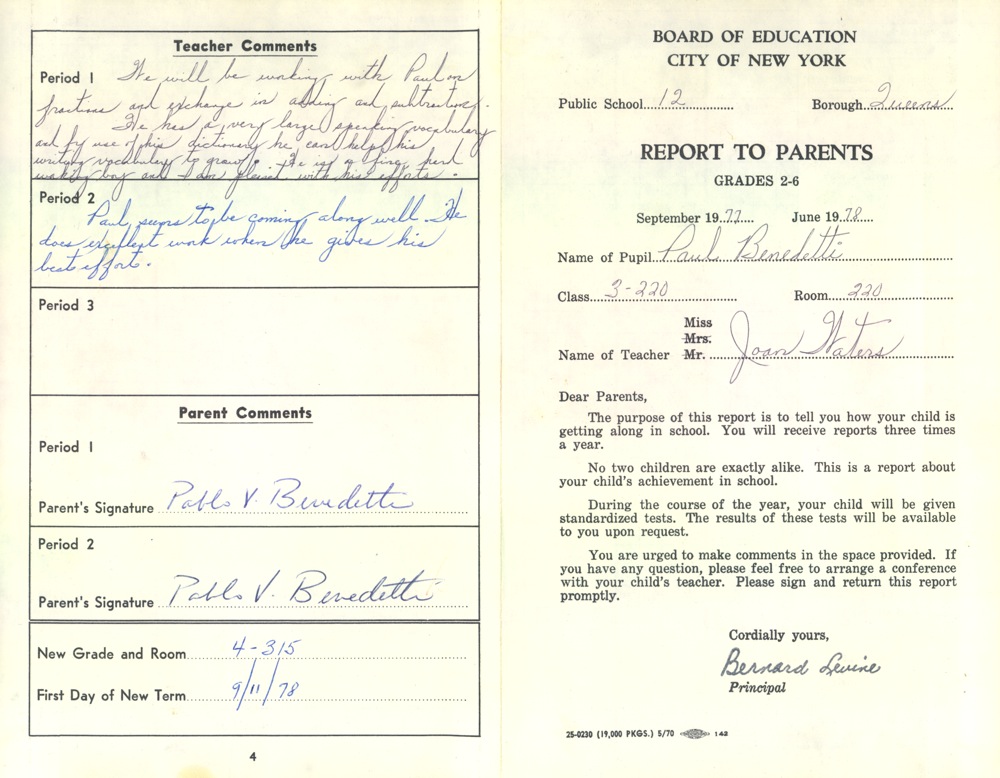 Teacher Comments
Period 1 We will be working with Paul on
fractions and exchange in adding and subtracting.
He has a very large speaking vocabulary
and by use of his dictionary he can help his
writing vocabulary to grow. He is a fine, hard
working boy and I am pleased with his efforts.
Period 2
Paul seems to be coming along well. He
does excellent work when he gives his
best effort.
Period 3
Parent Comments
Period 1
Parent's Signature Pablo V. Benedetti
Period 2
Parent's Signature Pablo V. Benedetti
New Grade and Room 4-315
First Day of New Term 9/11/78
4
BOARD OF EDUCATION
CITY OF NEW YORK
Public School 12 Borough Queens
REPORT TO PARENTS
GRADES 2-6
September 1977 June 1978
Name of Pupil Paul Benedetti
Class 3-220 Room 220
Miss
Mrs.
Name of Teacher Mr. Joan Waters
Dear Parents,
The purpose of this report is to tell you how your child is
getting along in school. You will receive reports three times
a year.
No two children are exactly alike. This is a report about
your child's achievement in school.
During the course of the year, your child will be given
standardized tests. The results of these tests will be available
to you upon request.
You are urged to make comments in the space provided. If
you have any question, please feel free to arrange a conference
with your child's teacher. Please sign and return this report
promptly.
Cordially yours,
Bernard Levine
Principal
25-0230 (19,000 PKGS.) 5/70 142